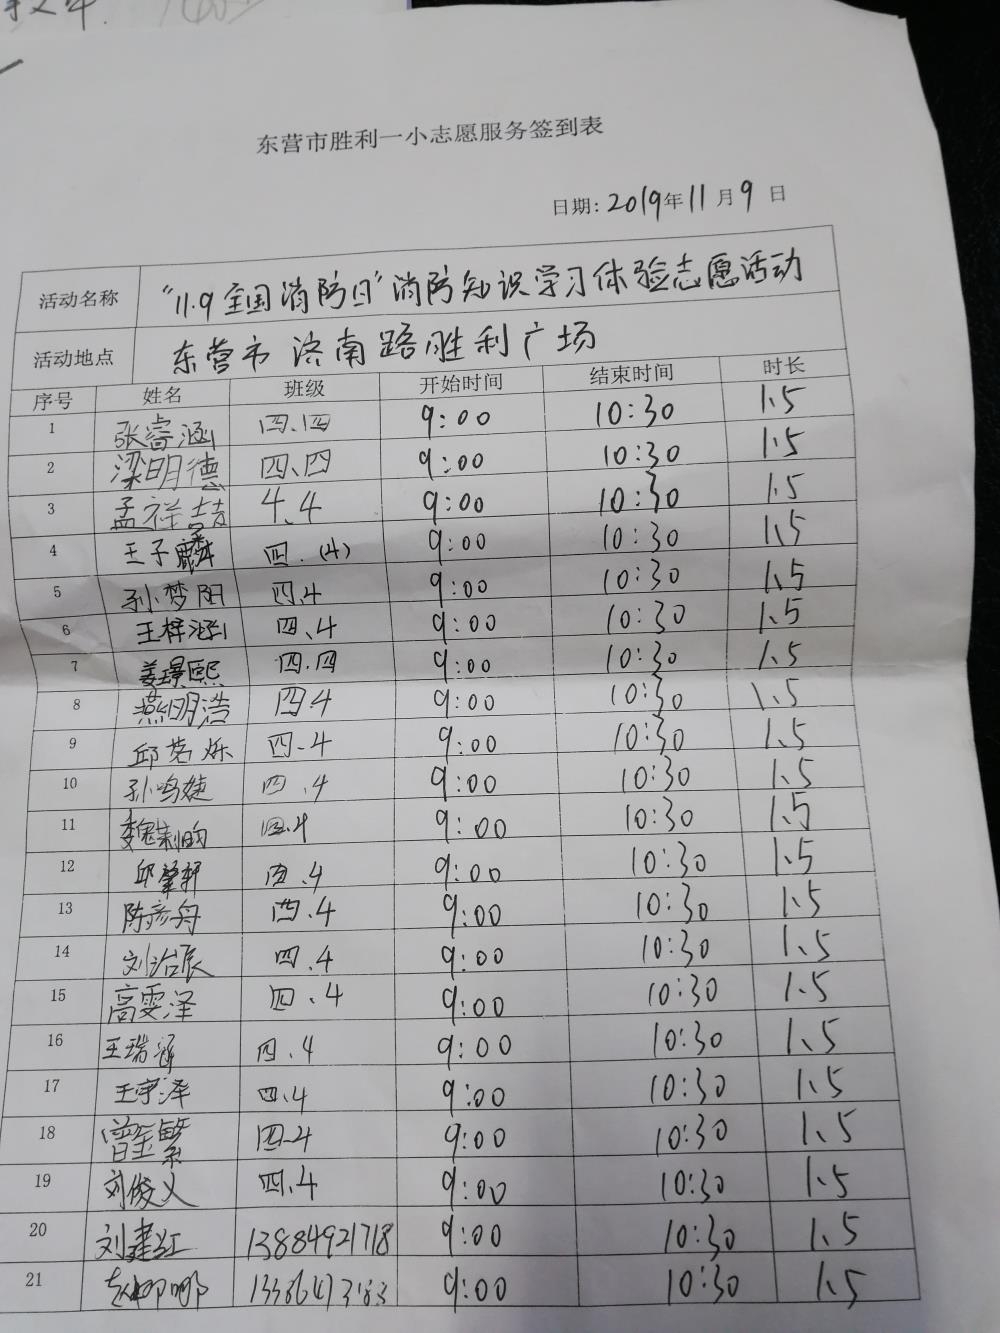 东营市胜利一小志愿服务签到表
日期: 2019年11月9日
活动名称 "11.9全国消防日"消防知识学习体验志愿活动
活动地点 东营市济南路胜利广场
序号 姓名 班级 开始时间 结束时间 时长
1 张睿涵 四.四 9:00 10:30 1.5
2 梁明德 四、四 9:00 10:30 1.5
3 孟祥喆 4.4 9:00 10:30 1.5
4 王子麟 四.(4) 9:00 10:30 1.5
5 孙梦阳 四.4 9:00 10:30 1.5
6 王梓涵 四、4 9:00 10:30 1.5
7 姜璟熙 四.四 9:00 10:30 1.5
8 燕明浩 四4 9:00 10:30 1.5
9 邱茗烁 四-4 9:00 10:30 1.5
10 孙鸣婕 四.4 9:00 10:30 1.5
11 四.4 9:00 10:30 1.5
12 邱肇轩 四.4 9:00 10:30 1.5
13 陈彦舟 四.4 9:00 10:30 1.5
14 刘治辰 四.4 9:00 10:30 1.5
15 高雯泽 四.4 9:00 10:30 1.5
16 王瑞涵 四.4 9:00 10:30 1.5
17 王宇泽 四.4 9:00 10:30 1.5
18 曾奎繁 四-4 9:00 10:30 1.5
19 刘俊义 四.4 9:00 10:30 1.5
20 刘建红 13884921718 9:00 10:30 1.5
21 9:00 10:30 1.5